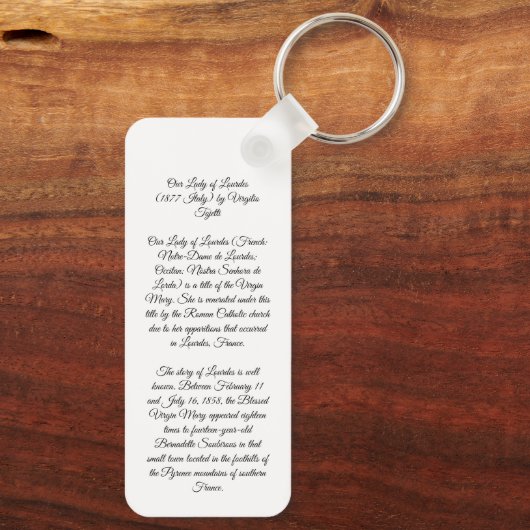 Our Lady of Lourdes
(1877 Italy) by Virgilio
Tojetti
Our Lady of Lourdes (French:
Notre-Dame de Lourdes;
Occitan: Nòstra Senhora de
Lorda) is a title of the Virgin
Mary. She is venerated under this
title by the Roman Catholic church
due to her apparitions that occurred
in Lourdes, France.
The story of Lourdes is well
known. Between February 11
and July 16, 1858, the Blessed
Virgin Mary appeared eighteen
times to fourteen-year-old
Bernadette Soubirous in that
small town located in the foothills of
the Pyrence mountains of southern
France.